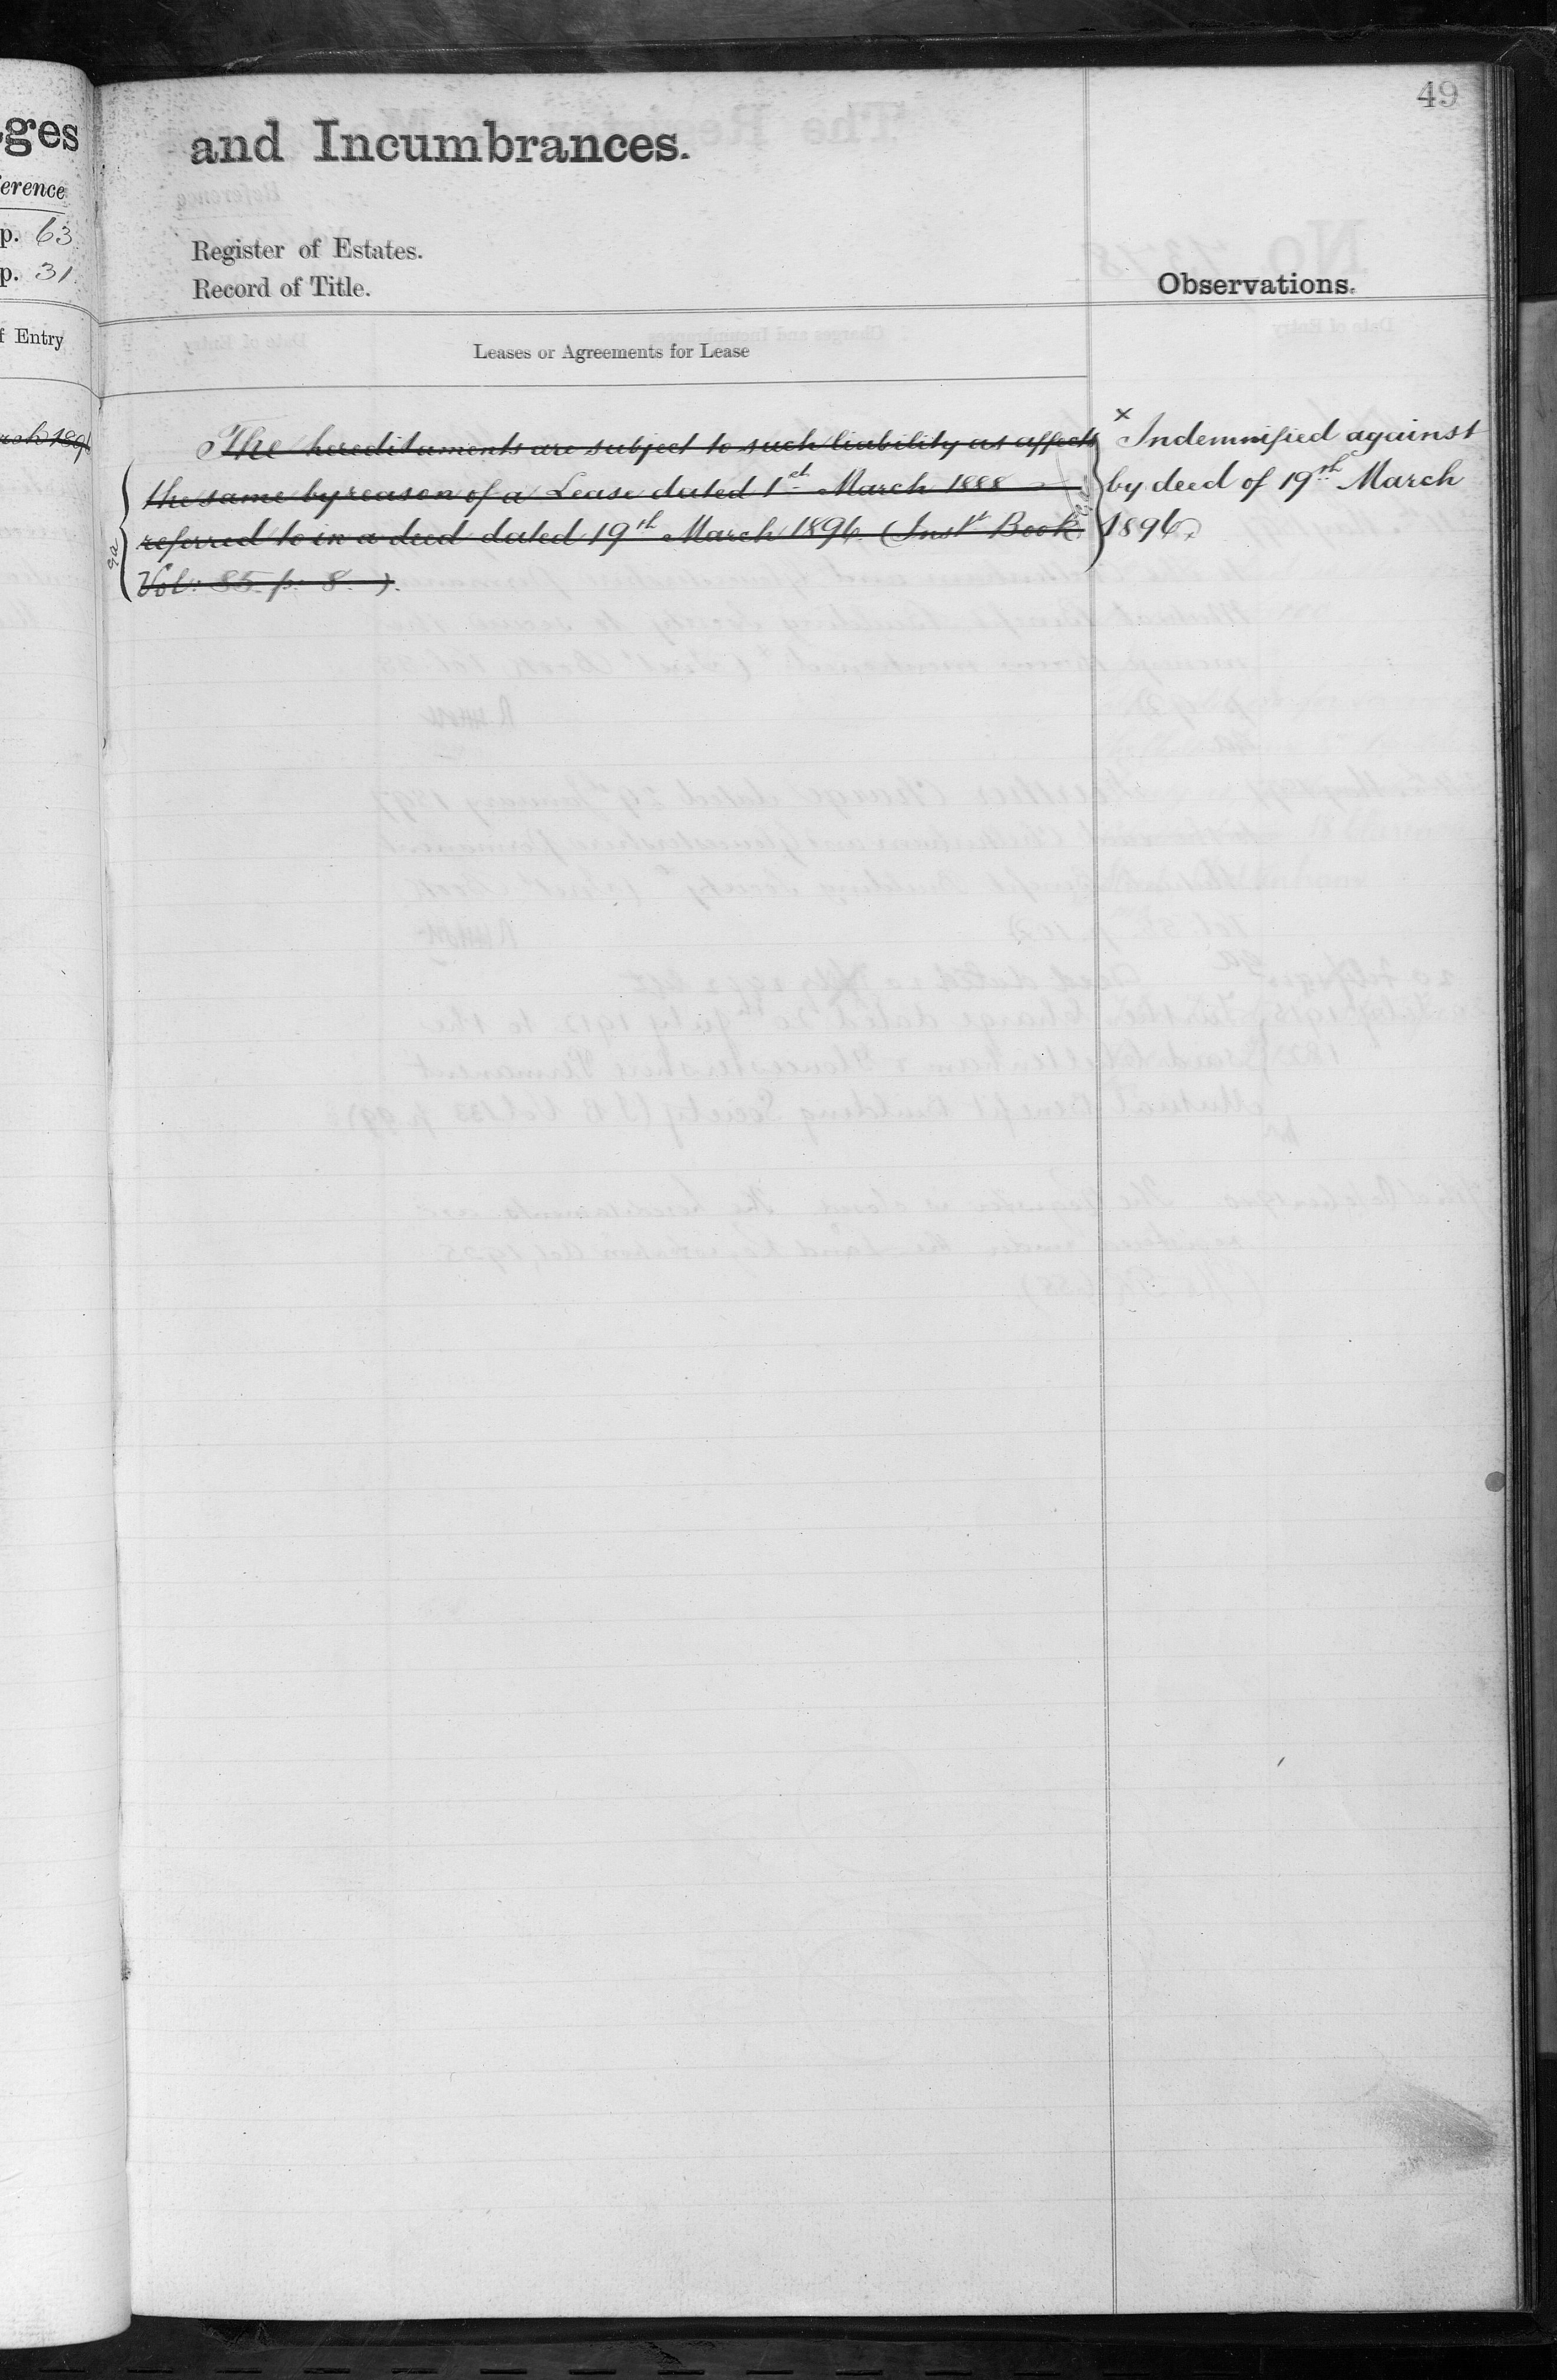 49
ges
and Incumbrances.
erence
p. 63
Register of Estates.
p. 31
Record of Title.
Observations.
f Entry
Leases or Agreements for Lease
The hereditaments are subject to such liability as affects
the same by reason of a Lease dated 1st March 1888
referred to in a deed dated 19th March 1896 (Inst Book
Vol: 85 p. 8.).
x Indemnified against
by deed of 19th March
1896